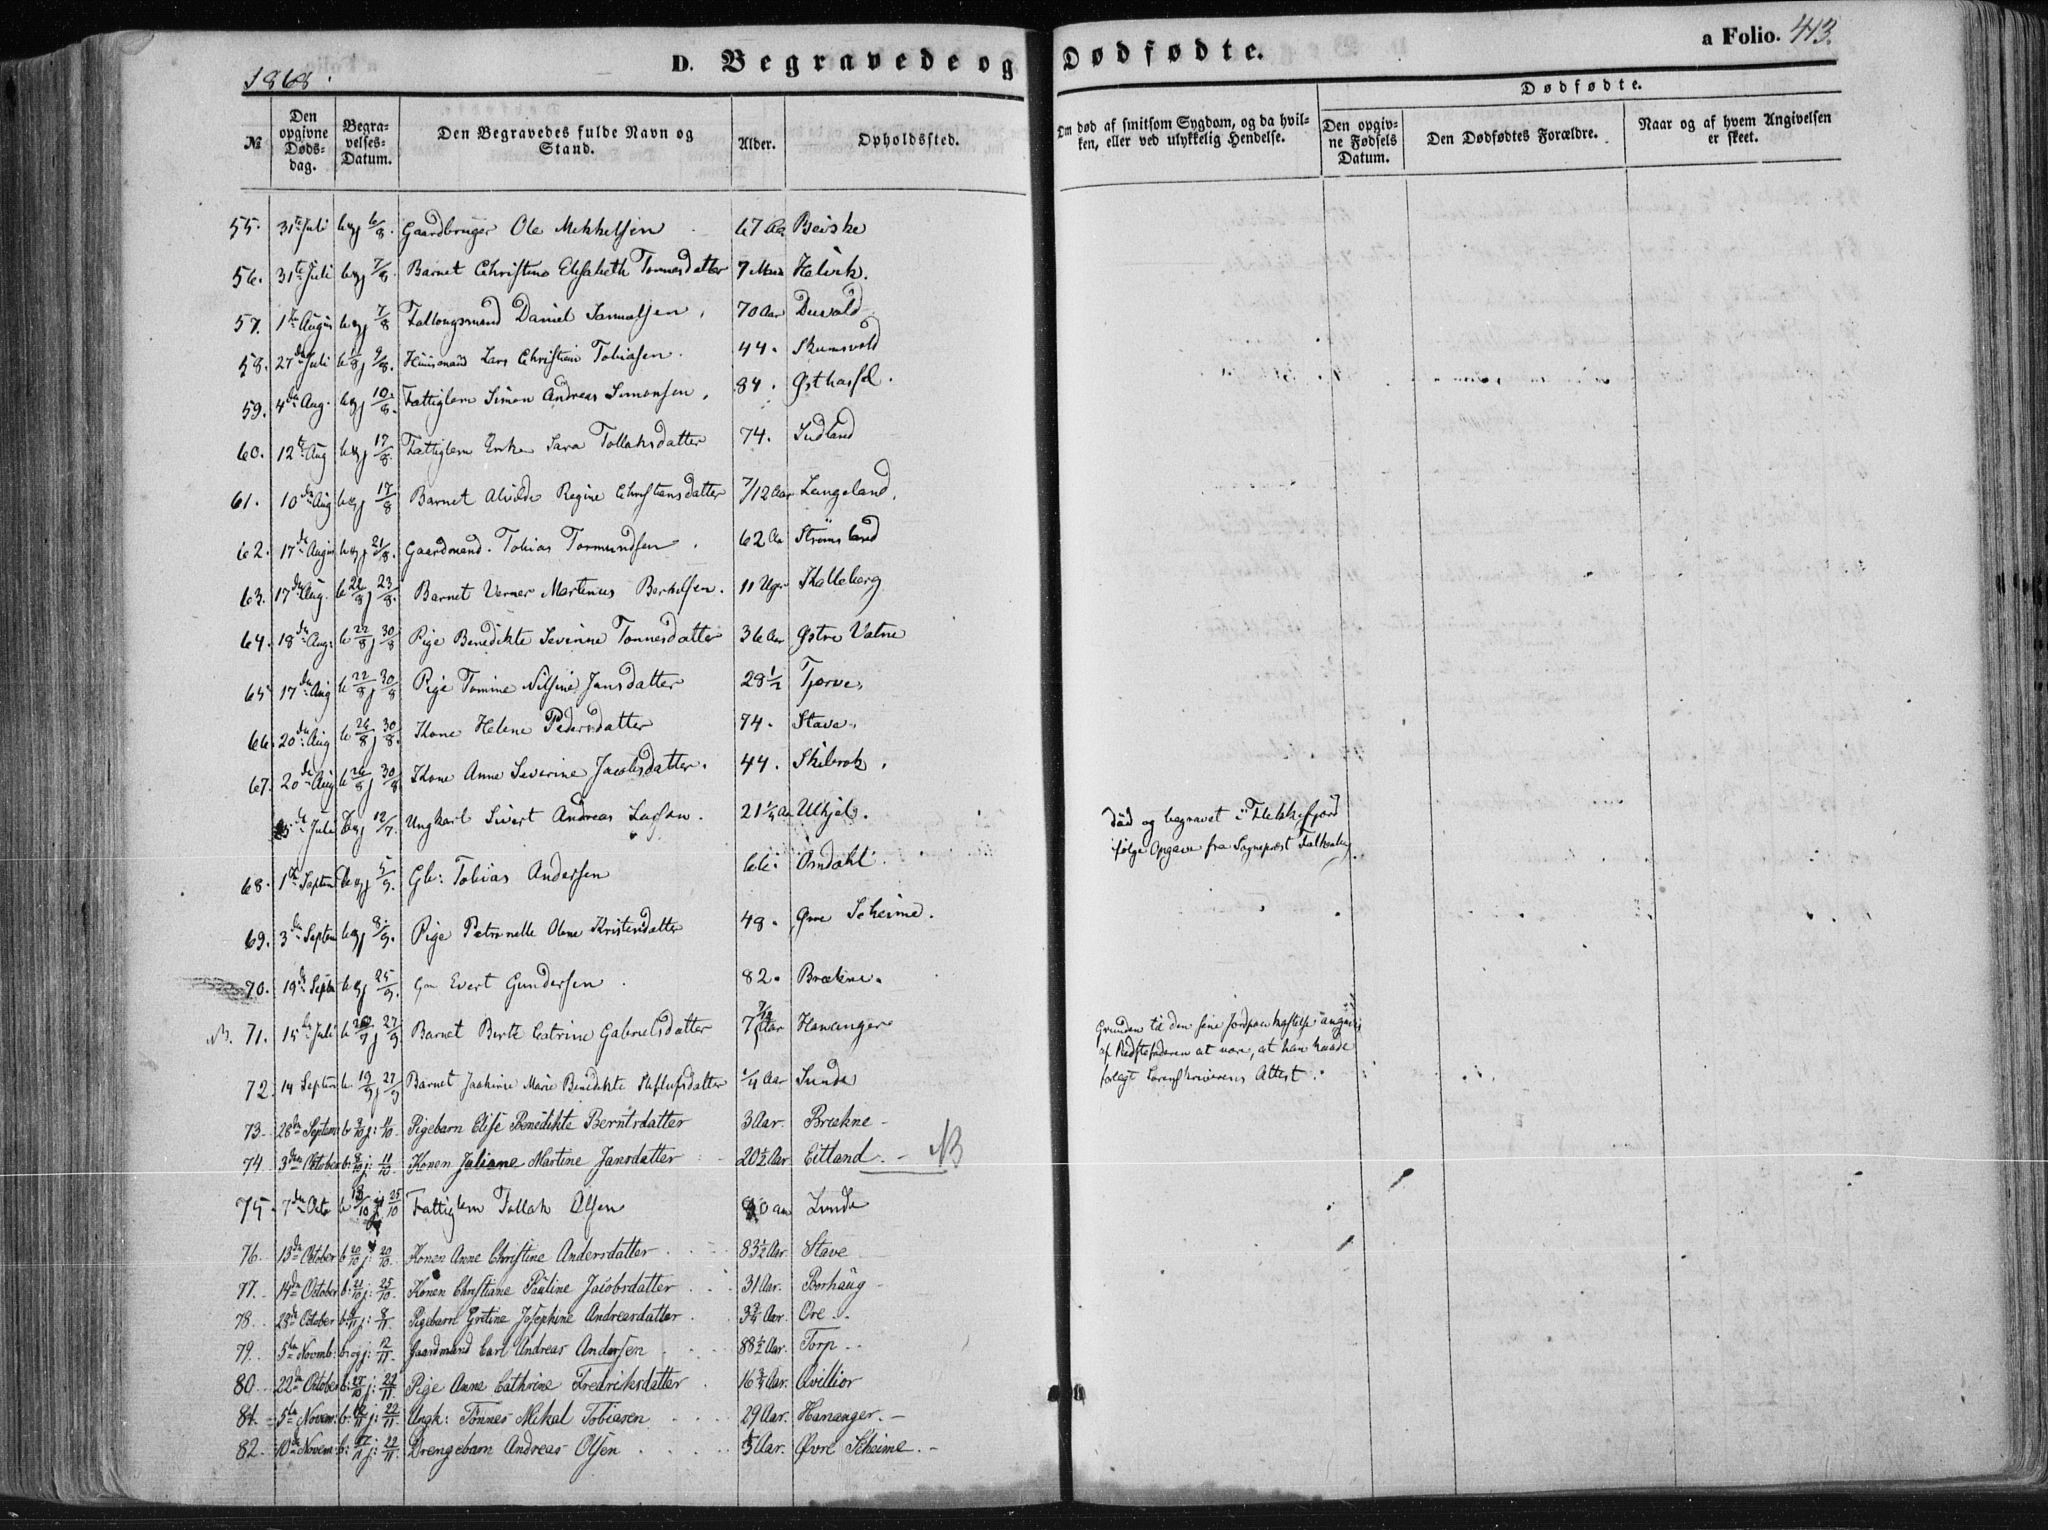 1868.
D. Begravede og Dødfødte.
a Folio. 413.
№
Den opgivne Døds-dag.
Begra-velses-Datum.
Den Begravedes fulde Navn og Stand.
Alder.
Opholdssted.
Om død af smitsom Sygdom, og da hvil-ken, eller ved ulykkelig Hendelse.
Dødfødte.
Den opgiv-ne Fødsels Datum.
Den Dødfødtes Forældre.
Naar og af hvem Angivelsen er skeet.
55. 31te Juli b og j 6/8. Gaardbruger Ole Mekkelsen 67 Aa Beiske
56. 31te Juli b og j 7/8. Barnet Christine Elisabeth Tønnesdatter 7 Maa Helvik.
57. 1te Augus b og j 7/8 Fallougsmand Daniel Samuelsen. 70 Aar Duvold
58. 27de Juli b 1/8 j 9/8. Huusmand Lars Christian Tobiasen. 44. Skumsvold
59. 4de Aug. b og j 10/8. Fattiglem Simon Andreas Simonsen. 84. Østhassel.
60. 12te Aug b og j 17/8. Fattiglem Enke Sara Tollaksdatter 74. Indland
61. 10de Aug b og j 17/8 Barnet Alvilde Regine Christiansdatter 7/12 Aar Langeland.
62. 17de Augus b og j 21/8. Gaardmand. Tobias Tormundsen. 62 Aa Strømsland
63. 17de Aug. b 22/8 j 23/8. Barnet Verner Martinus Berthelsen. 11 Uger Kalleberg
64. 18de Aug: b 22/8 j 30/8 Pige Benedikte Severine Tønnesdatter 36 Aar Østre Vatne
65 17de Aug b 22/8 j 30/8 Pige Tomine Nilsine Jansdatter 28 1/2 Tjørve,
66. 20de Aug b 26/8 j 30/8. Kone Helene Pedersdatter 74. Stave.
67. 20de Aug b 26/8 j 30/8 Kone Anne Severine Jacobsdatter. 44. Skibrok.
5de Juli b og j 12/7. Ungkarl Sivert Andreas Larsen. 21 1/4 Aa Ulhjel.
død og begravet i Flekkefjord
ifølge Opgave fra Sognepræst Falkenberg
68. 1te Septem b og j 5/9. Gb: Tobias Andersen 66. Omdahl.
69. 3de Septem b og j 8/9. Pige Petronelle Olene Kristensdatter 48. Øvre Skeime.
70. 19de Septe b og j 25/9. Gm Evert Gundersen. 82. Brækne.
NB. 71. 15de Juli b 20/7 j 27/9 Barnet Berte Catrine Gabrielsdatter 7/12 Aar Hananger
Grunden til den sene Jordpaakastelse angives
af Bedstefaderen at være, at han havde
forlagt Sorenskriverens Attest.
72. 14 Septem b 19/9 j 27/9 Barnet Joakime Marie Benedikte Olufsdatter 1/4 Aar Sunde
73. 28de Septem b 9/10 j: 11/10. Pigebarn Elise Benedikte Berntsdatter 3 Aar. Brækne
74 3die October b: 8/10 j: 11/10. Konen Juliane Martine Jansdatter 20 1/2 Aar Eitland. NB
75. 7de Octo b 13/10 j 25/10 Fattiglem Tollak Olsen 80 aa Lunde
76. 13de October b: 20/10 j: 20/10. Konen Anne Christine Andersdatter 83 1/2 Aar. Stave
77. 14de October b: 21/10 j: 25/10 Konen Christiane Pauline Jacobsdatter 31 Aar. Borhaug
78. 28de October b: 2/11 j: 8/11. Pigebarn Grétine Josephine Andreasdatter 3 3/4 Aar. Ore.
79. 5te Novmb: b: og j: 12/11. Gaardmand Carl Andreas Andersen 88 1/2 Aar. Torp
80. 22de October b: 27/10 j: 22/11. Pige Anne Cathrine Fredriksdatter 16 3/4 Aar. Qvillior
81. 5te Novem: b: 12/11 j: 22/11. Ungk: Tønnes Mikal Tobiasen 29 Aar. Hananger.
82. 10de Novem b: 17/11 j: 22/11. Drengebarn Andreas Olsen 5 Aar. Øvre Skeime.